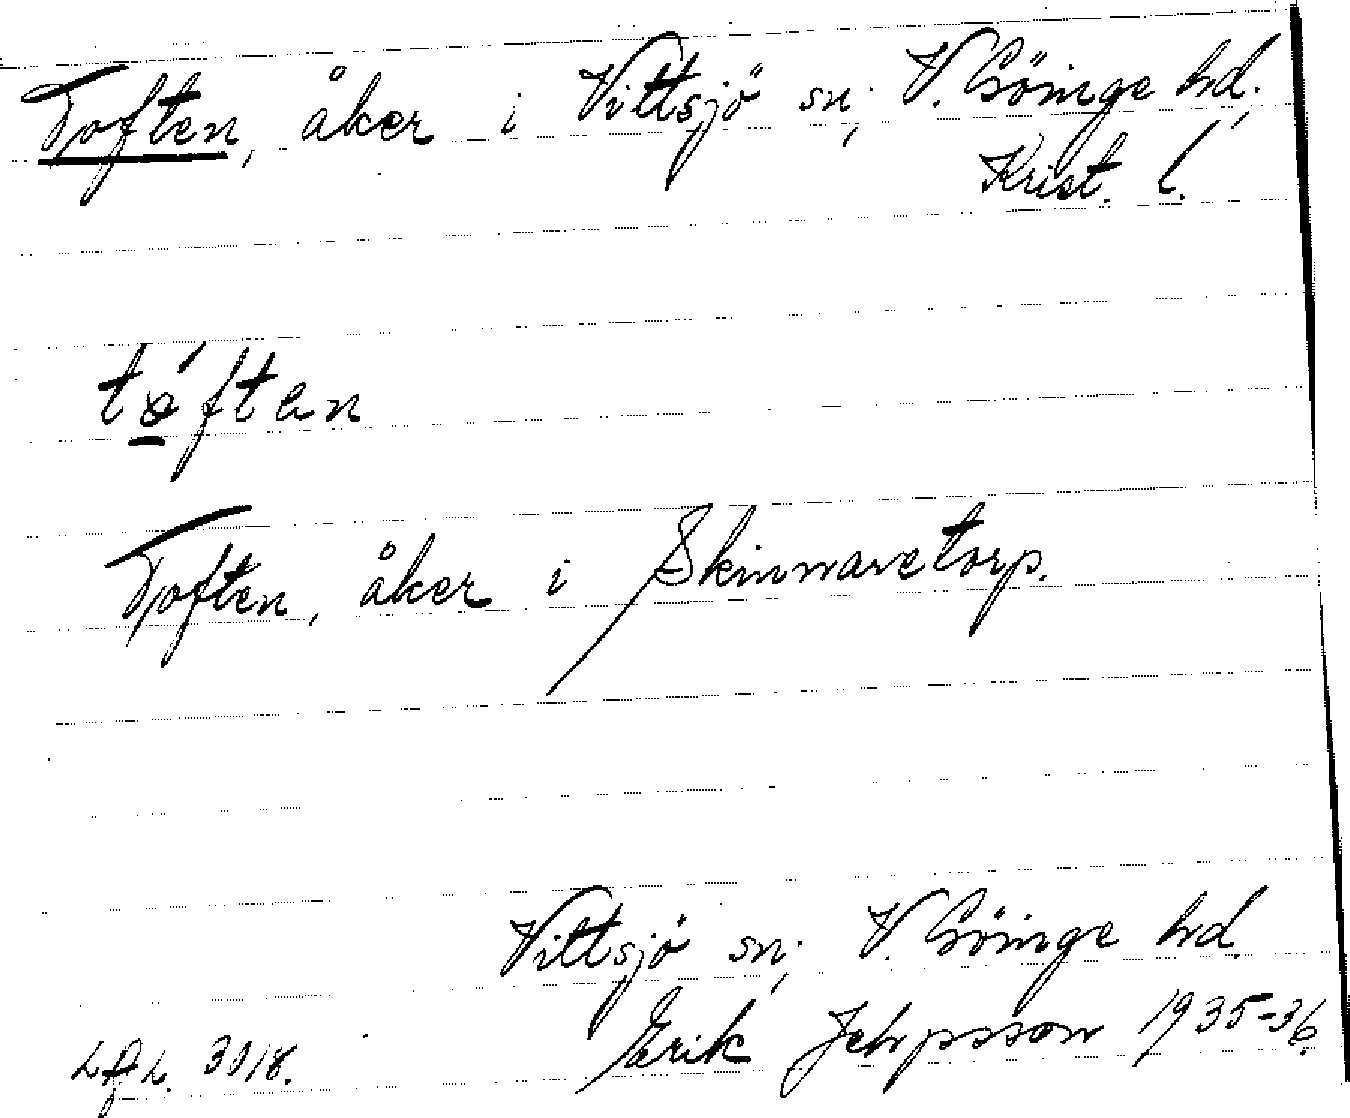 Toften, åker i Vittsjö sn; V. Göinge hd,
Krist. l.
tǿften
Toften, åker i Skinnaretorp.
Vittsjö sn; V. Göinge hd.
Erik Jehpsson 1935-36.
3018.